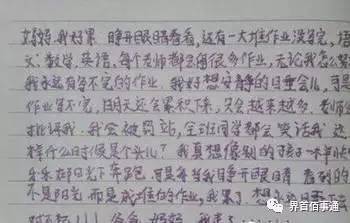 妈妈,我好累,睁开眼睛看看,还有一大堆作业没写完,语
文、数学、英语,每个老师都会留很多作业,无论我怎么努
我永远有写不完的作业。我好想安静的自
作业写不完,明天还会累积下来,只会越来越多,老师
批评我。我会被罚站,全班同学都会笑话我,这
样什么时候是个头儿?我真想像别的孩子一样快
乐乐在阳光下奔跑,可是每当我睁开眼睛,看到的
不是阳光,而是成堆的作业,我累了,想
爸爸、妈妈,我走了
界首百事通